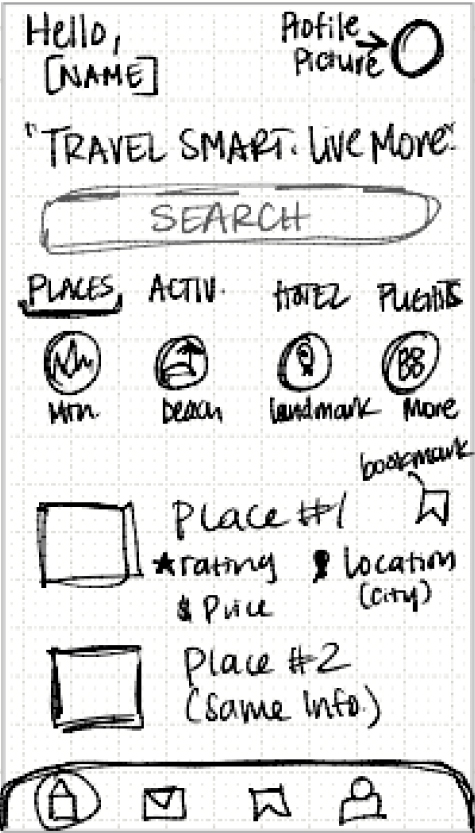 Hello, Profile
[NAME] Picture
"TRAVEL SMART. Live More."
SEARCH
PLACES ACTIV. HOTEL FLIGHTS
Mtn. beach landmark More
bookmark
Place #1
rating Location
$ Price (City)
Place #2
(Same Info.)